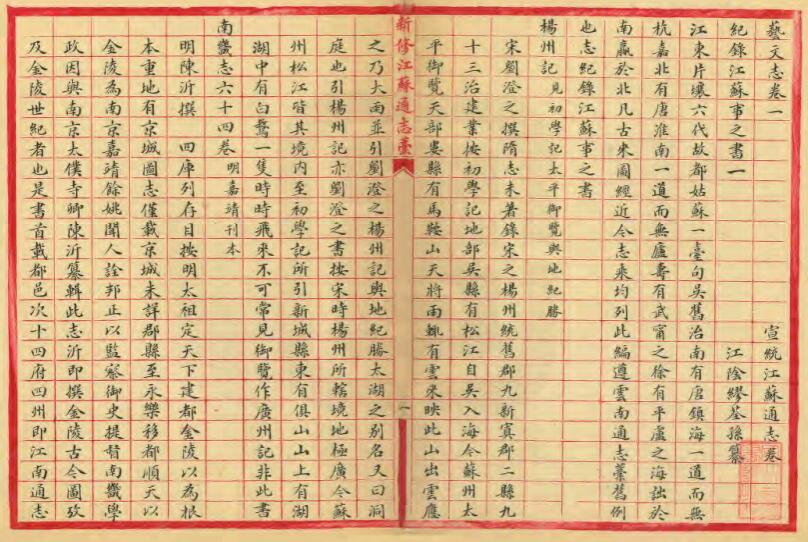 藝文志卷一
宣統江蘇通志卷
紀錄江蘇事之書一
江陰繆荃孫纂
江東片壤六代故都姑蘇一臺句吳舊治南有唐鎮海一道而無
杭嘉北有唐淮南一道而無廬壽有武甯之徐有平盧之海詘於
南贏於北凡古來圖經近今志乘均列此編遵雲南通志藁舊例
也志紀錄江蘇事之書
楊州記 見初學記太平御覽輿地紀勝
宋劉澄之撰隋志未著錄宋之楊州統舊郡九新寘郡二縣九
十三治建業按初學記地部吳縣有松江自吳入海今蘇州太
平御覽天部婁縣有馬鞍山天將雨輙有雲來映此山出雲應
新修江蘇通志藁
一
之乃大雨並引劉澄之楊州記輿地紀勝太湖之别名又曰洞
庭也引楊州記亦劉澄之書按宋時楊州所轄境地極廣今蘇
州松江皆其境内至初學記所引新城縣東有俱山山上有湖
湖中有白鵞一隻時時飛來不可常見御覽作廣州記非此書
南畿志六十四卷 明嘉靖刊本
明陳沂撰 四庫列存目按明太祖定天下建都金陵以為根
本重地有京城圖志僅載京城未詳郡縣至永樂移都順天以
金陵為南京嘉靖餘姚聞人詮邦正以監察御史提督南畿學
政因與南京太僕寺卿陳沂纂輯此志沂即撰金陵古今圖攷
及金陵世紀者也是書首載都邑次十四府四州即江南通志